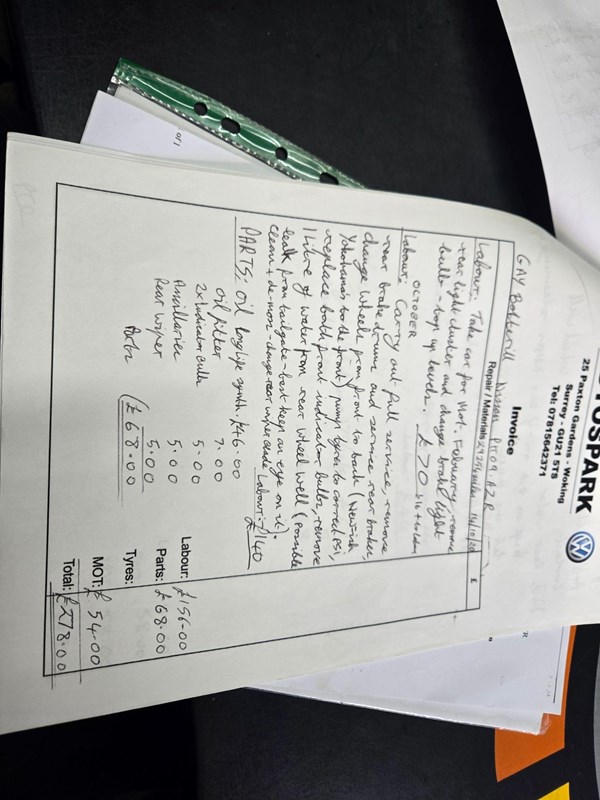 OTOSPARK
25 Paxton Gardens - Woking
Surrey - GU21 5TS
Tel: 07815642371
Invoice
GAY Botterill Nissan
Repair / Materials
£
Labour: Take car for Mot. February, remove
rear light cluster and change brake light
bulb - top up levels. £70
OCTOBER
Labour: Carry out full service, remove
rear brake drums and service rear brakes,
change wheels from front to back (Newish
Yokohama's to the front) pump tyres to correct psi,
replace both front indicator bulbs, remove
1 litre of water from rear wheel well (possible
leak from tailgate - best keep an eye on it).
Clean + de-moss - change rear wiper blade Labour: £140
PARTS: oil longlife synth. £46.00
oil filter 7.00
2x indicator bulbs 5.00
Ancillaries 5.00
Rear wiper 5.00
Parts £68.00
Labour: £156-00
Parts: £68.00
Tyres:
MOT: £54.00
Total: £278.00